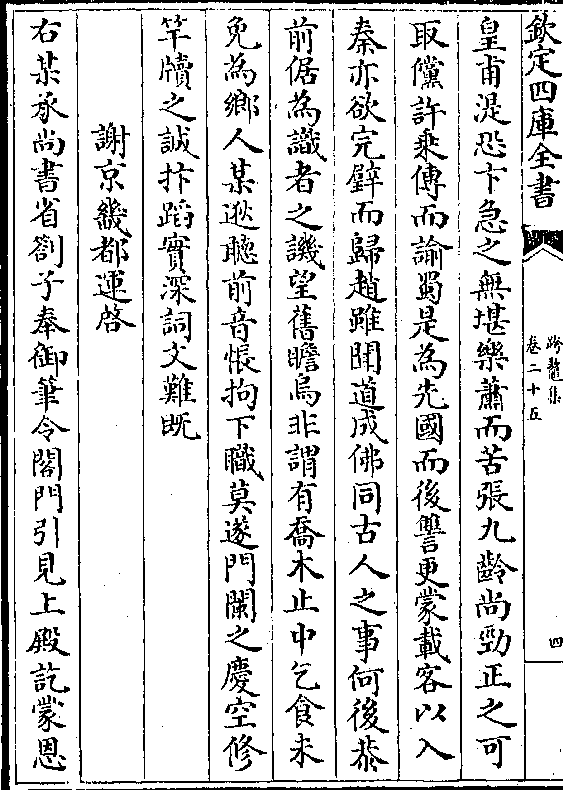 欽定四庫全書
跨鼇集
卷二十五
四
皇甫湜恐卞急之無堪樂蕭而苦張九齡尚勁正之可
取儻許乘傳而諭蜀是為先國而後讐更蒙載客以入
秦亦欲完璧而歸趙雖聞道成佛同古人之事何後恭
前倨為識者之譏望舊瞻烏非謂有喬木止中乞食未
免為鄉人某逖聽前音悵拘下職莫遂門闌之慶空修
竿牘之誠抃蹈實深詞文難旣
謝京畿都運啓
右某承尚書省劄子奉御筆令閤門引見上殿訖蒙恩